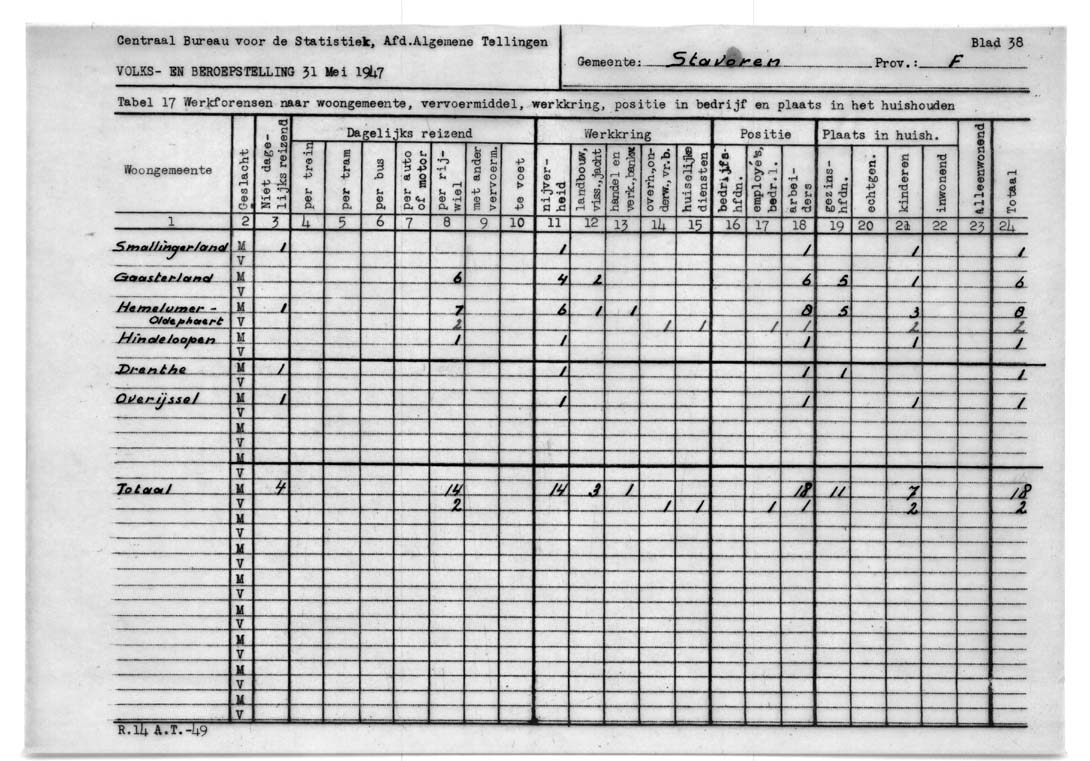 Centraal Bureau voor de Statistiek, Afd.Algemene Tellingen
VOLKS- EN BEROEPSTELLING 31 Mei 1947
Gemeente: Stavoren Prov.: F
Blad 38
Tabel 17 Werkforensen naar woongemeente, vervoermiddel, werkkring, positie in bedrijf en plaats in het huishouden
Woongemeente Geslacht Niet dage- lijks reizend Dagelijks reizend Werkkring Positie Plaats in huish. Alleenwonend Totaal
per trein per tram per bus per auto of motor per rij- wiel met ander vervoerm. te voet nijver- heid landbouw, viss.,jacht handel en verk.,bankw overh.,on- derw.,vr.b. huiselijke diensten bedrijfs- hfdn. employe's, bedr.l. arbei- ders gezins- hfdn. echtgen. kinderen inwonend
1 2 3 4 5 6 7 8 9 10 11 12 13 14 15 16 17 18 19 20 21 22 23 24
Smallingerland M 1 1 1 1 1
V
Gaasterland M 6 4 2 6 5 1 6
V
Hemelumer- M 1 7 6 1 1 8 5 3 8
Oldephaert V 2 1 1 1 1 2 2
Hindeloopen M 1 1 1 1 1
V
Drenthe M 1 1 1 1 1
V
Overijssel M 1 1 1 1 1
V
M
V
M
V
Totaal M 4 14 14 3 1 18 11 7 18
V 2 1 1 1 1 2 2
M
V
M
V
M
V
M
V
M
V
M
V
M
V
R.14 A.T.-49